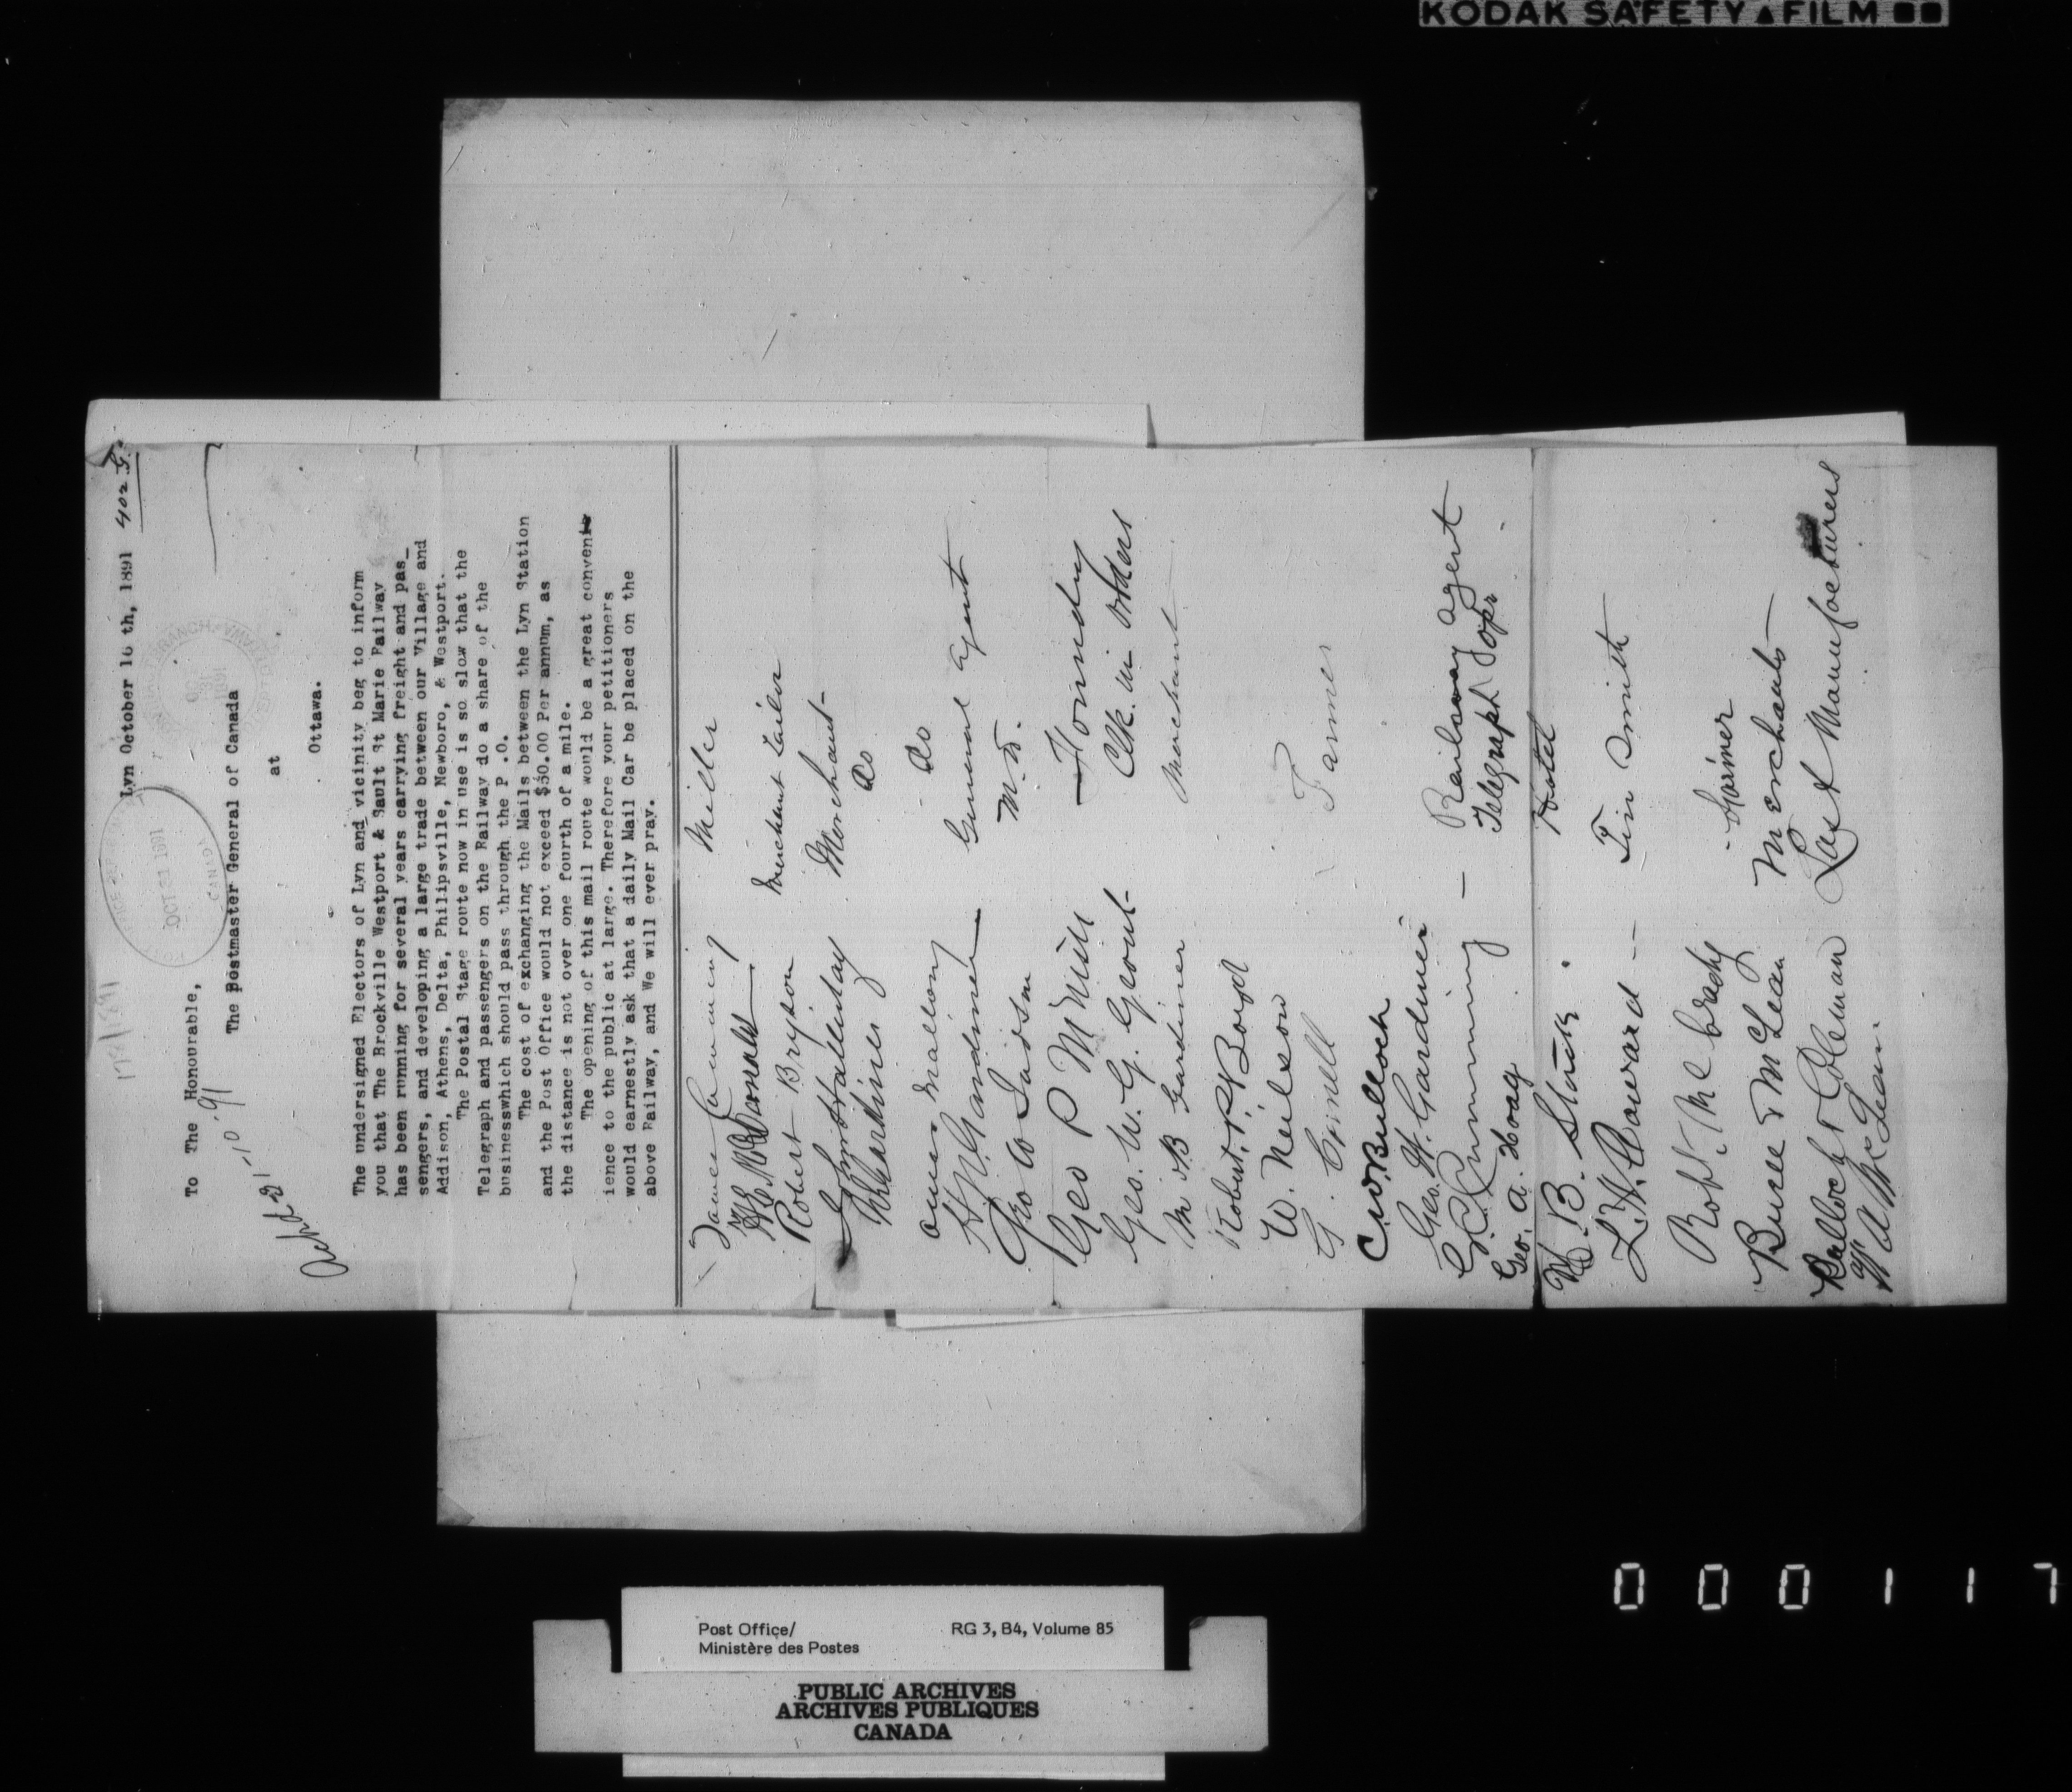 KODAK SAFETY FILM
402 G.
Lyn October 16 th, 1891
OCT 21 1891
CANADA
To The Honourable,
The Postmaster General of Canada
at
Ottawa.
Ackd 21-10-'91
The undersigned Electors of Lyn and vicinity beg to inform
you that The Brockville Westport & Sault St Marie Railway
has been running for several years carrying freight and pas_
sengers, and developing a large trade between our Village and
Addison, Athens, Delta, Philipsville, Newboro, & Westport.
The Postal Stage route now in use is so slow that the
Telegraph and passengers on the Railway do a share of the
businesswhich should pass through the P .O.
The cost of exchanging the Mails between the Lyn Station
and the Post Office would not exceed $50.00 Per annum, as
the distance is not over one fourth of a mile.
The opening of this mail route would be a great conven
ience to the public at large. Therefore your petitioners
would earnestly ask that a daily Mail Car be placed on the
above Railway, and We will ever pray.
James Cumming Miller
McDonald
Robert Bryson Merchant Tailor
John Halliday Merchant
Do
Amos Mallory Do
Gardiner General Agent
Geo W Judson M.D.
Geo P McNish Foundry
Geo. W. G. Grout Clk. in Orders
M B Gardiner Merchant
Robert P. Boyd
W. Neilson
G. Cornell Farmer
C W Bulloch
Geo. H. Gardiner
G. C. Cumming — Railway Agent
Telegraph Opr.
Geo. A. Hoag Hotel
B. Stack
Coward — Tin Smith
Robt. McCrady Farmer
Buree & McLean Merchants
Bulloch & Coleman Last Manufacturers
A McLean
Post Office/
Ministère des Postes
RG 3, B4, Volume 85
PUBLIC ARCHIVES
ARCHIVES PUBLIQUES
CANADA
000117